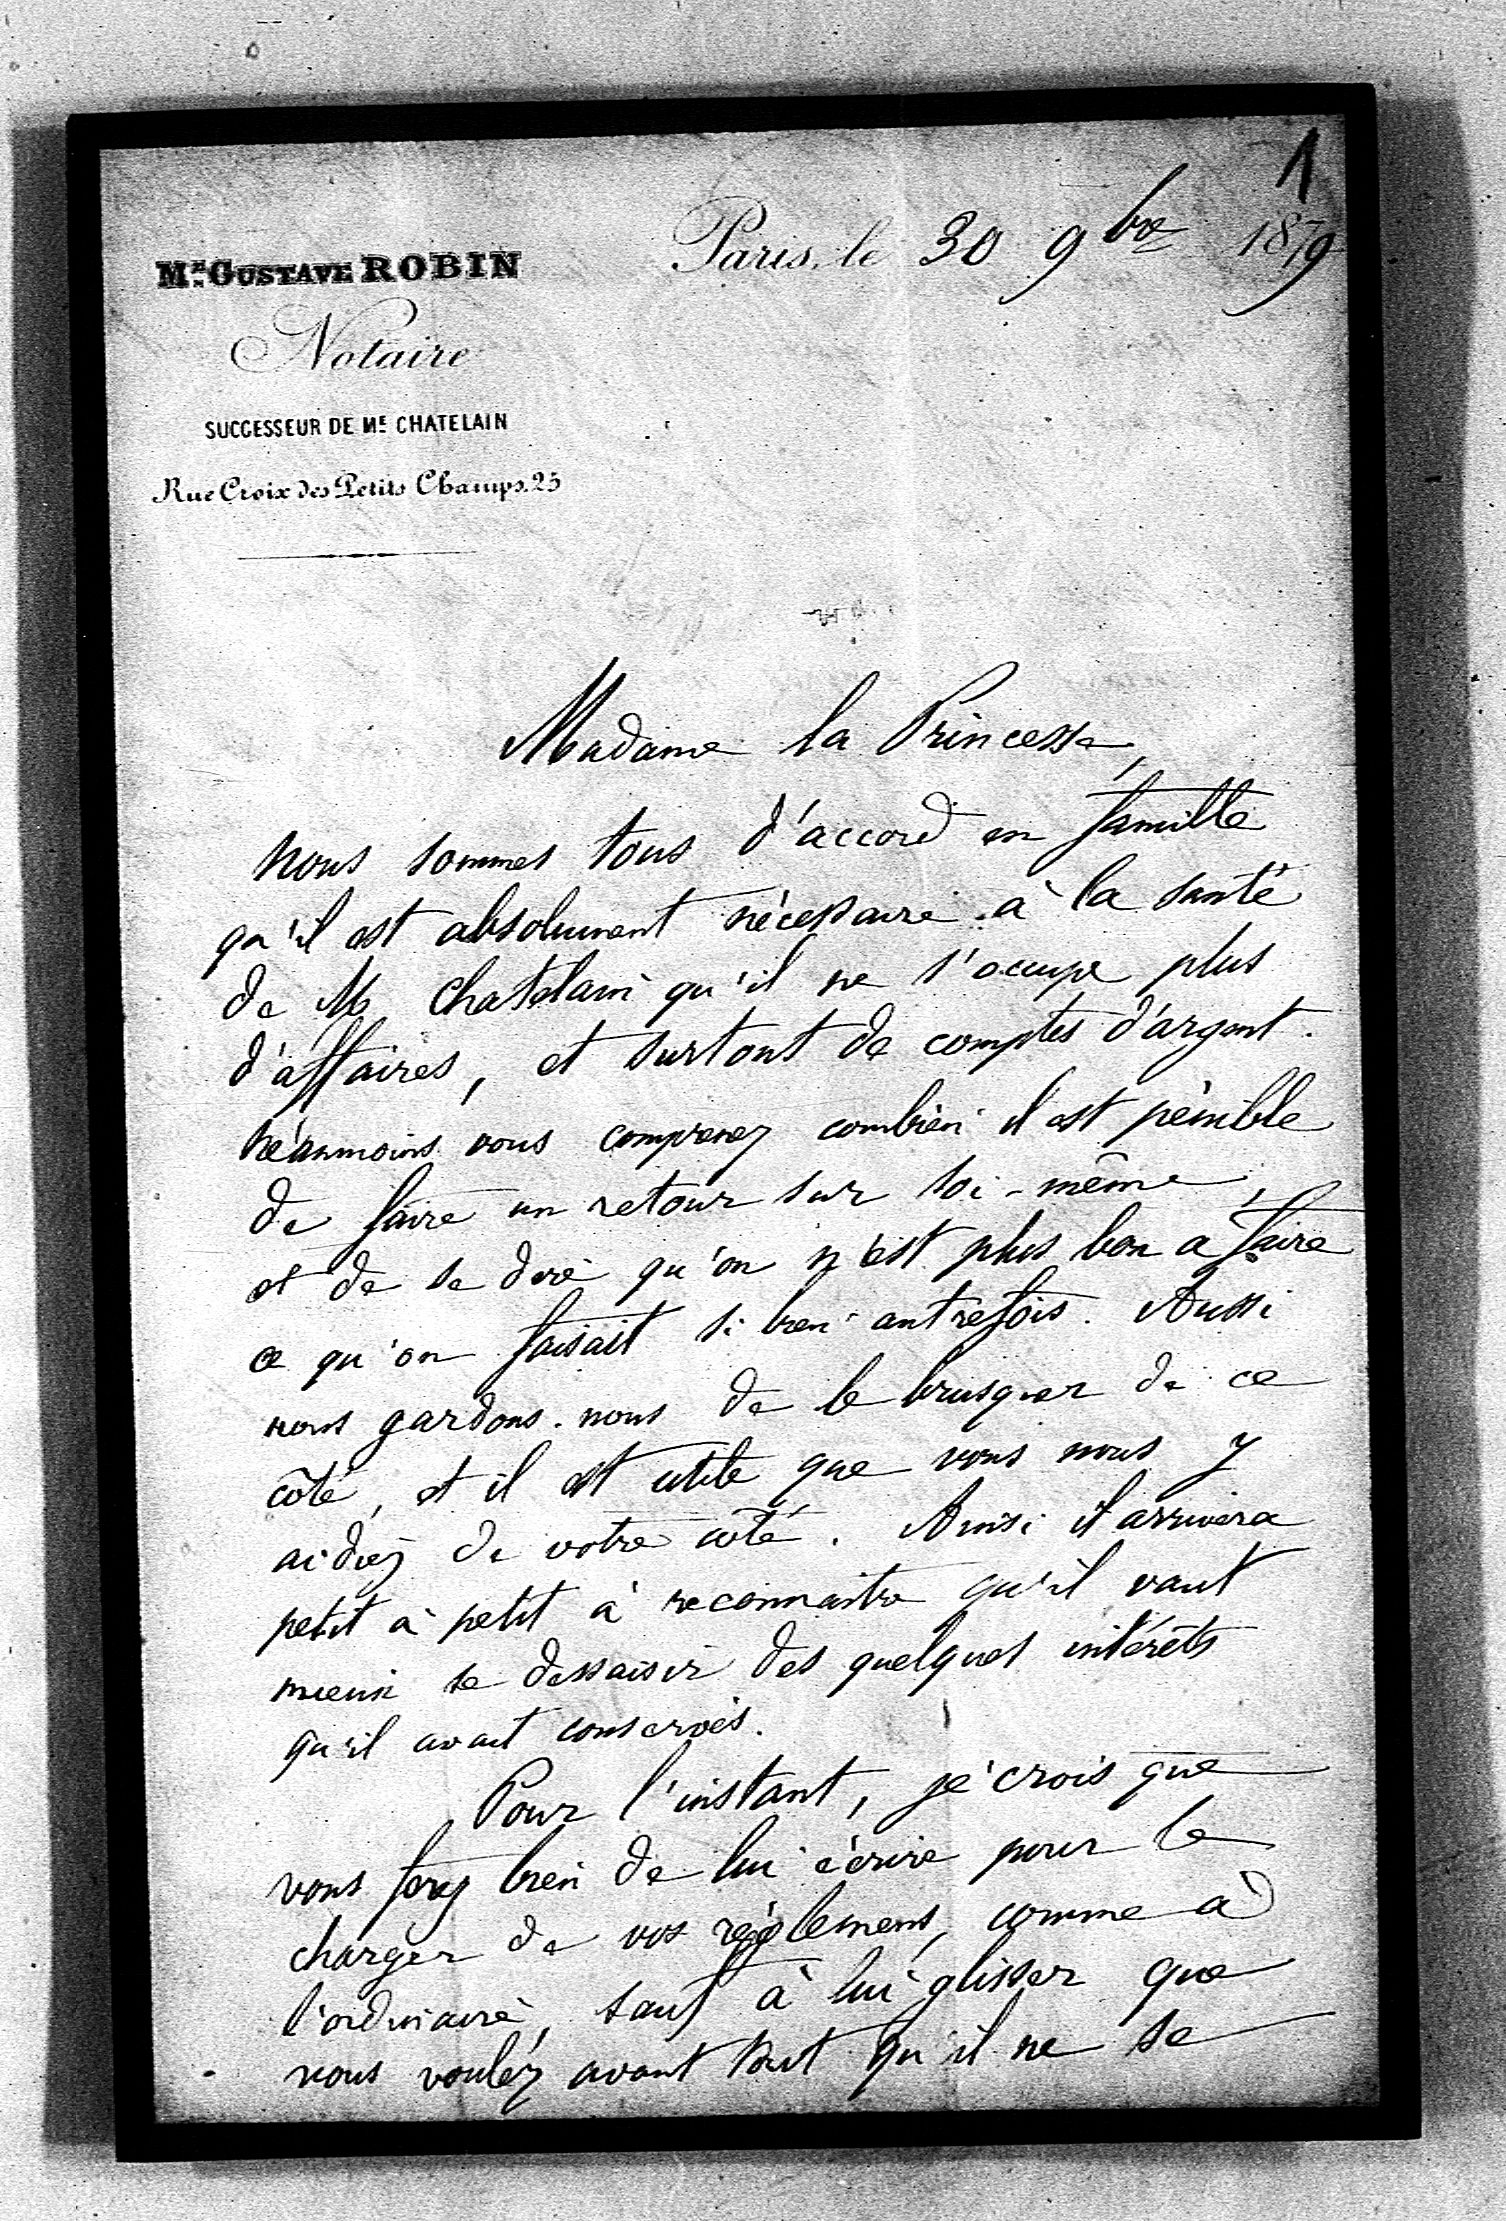 1
Paris, le 30 9bre 1879
Me GUSTAVE ROBIN
Notaire
SUCCESSEUR DE Me CHATELAIN
Rue Croix des Petits Champs. 25
Madame la Princesse,
nous sommes tous d'accord en famille
qu'il est absolument nécessaire à la santé
de M Chatelain qu'il ne s'occupe plus
d'affaires, et surtout de comptes d'argent.
néanmoins vous comprenez combien il est pénible
de faire un retour sur soi-même,
et de se dire qu'on n'est plus bon a faire
ce qu'on faisait si bien autrefois. Aussi
nous gardons-nous de le brusquer de ce
côté, et il est utile que vous nous y
aidiez de votre côté. Ainsi il arrivera
petit à petit à reconnaitre qu'il vaut
mieux se dessaisir des quelques intérêts
qu'il avait conservés.
Pour l'instant, je crois que
vous ferez bien de lui écrire pour le
charger de vos règlemens, comme à
l'ordinaire, sauf à lui glisser que
vous voulez avant tout qu'il ne se